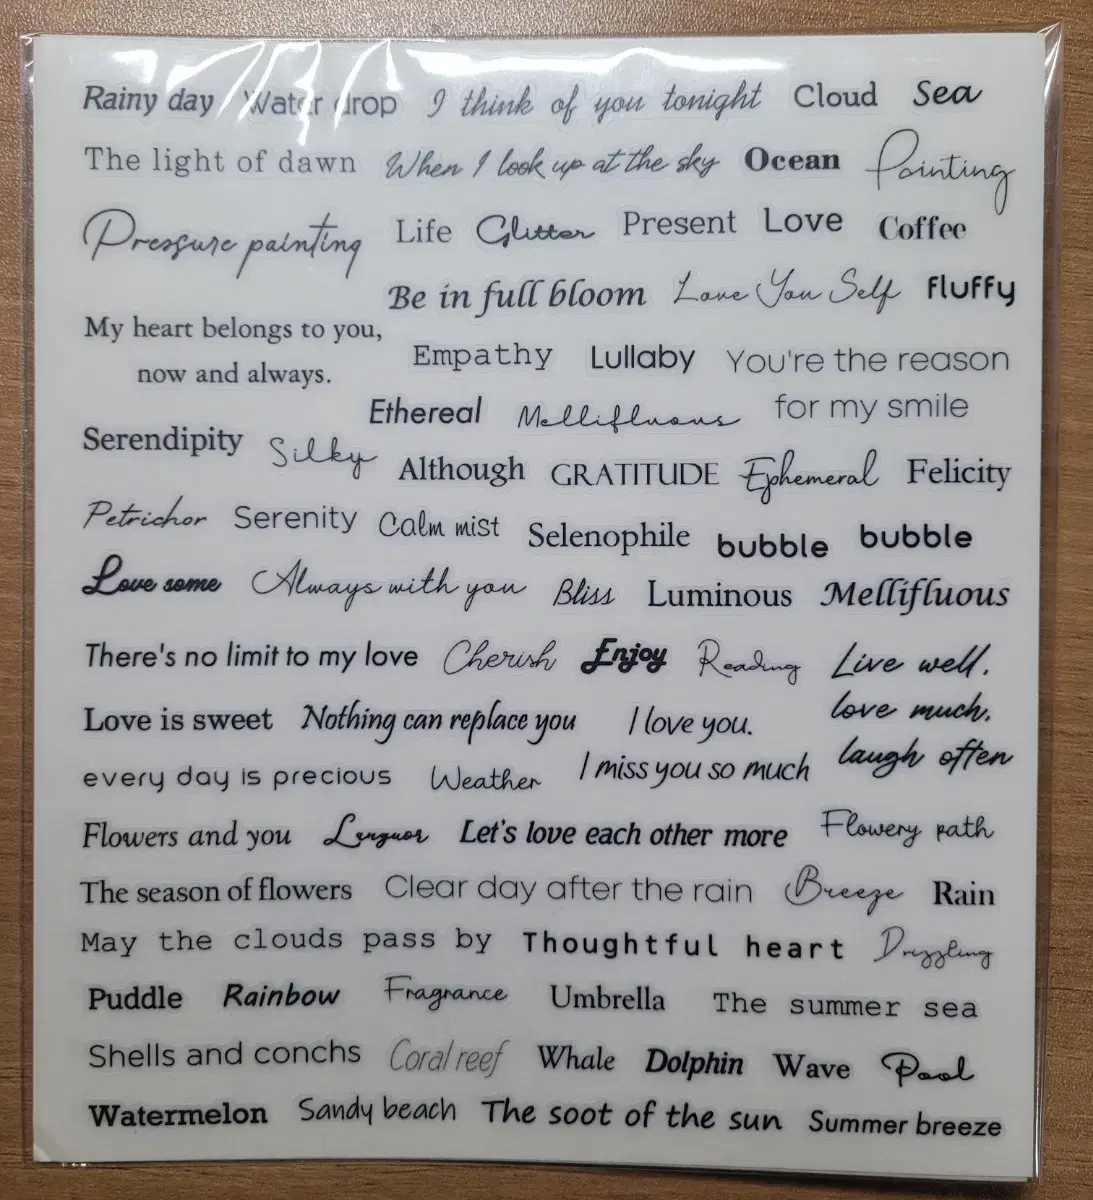 Rainy day Water drop I think of you tonight Cloud Sea
The light of dawn When I look up at the sky Ocean Painting
Pressure painting Life Glitter Present Love Coffee
Be in full bloom Love You Self fluffy
My heart belongs to you,
now and always.
Empathy Lullaby You're the reason
for my smile
Ethereal Mellifluous
Serendipity Silky Although GRATITUDE Ephemeral Felicity
Petrichor Serenity Calm mist Selenophile bubble bubble
Love some Always with you Bliss Luminous Mellifluous
There's no limit to my love Cherish Enjoy Reading Live well,
love much,
laugh often
Love is sweet Nothing can replace you I love you.
every day is precious Weather I miss you so much
Flowers and you Languor Let's love each other more Flowery path
The season of flowers Clear day after the rain Breeze Rain
May the clouds pass by Thoughtful heart Drizzling
Puddle Rainbow Fragrance Umbrella The summer sea
Shells and conchs Coral reef Whale Dolphin Wave Pool
Watermelon Sandy beach The soot of the sun Summer breeze